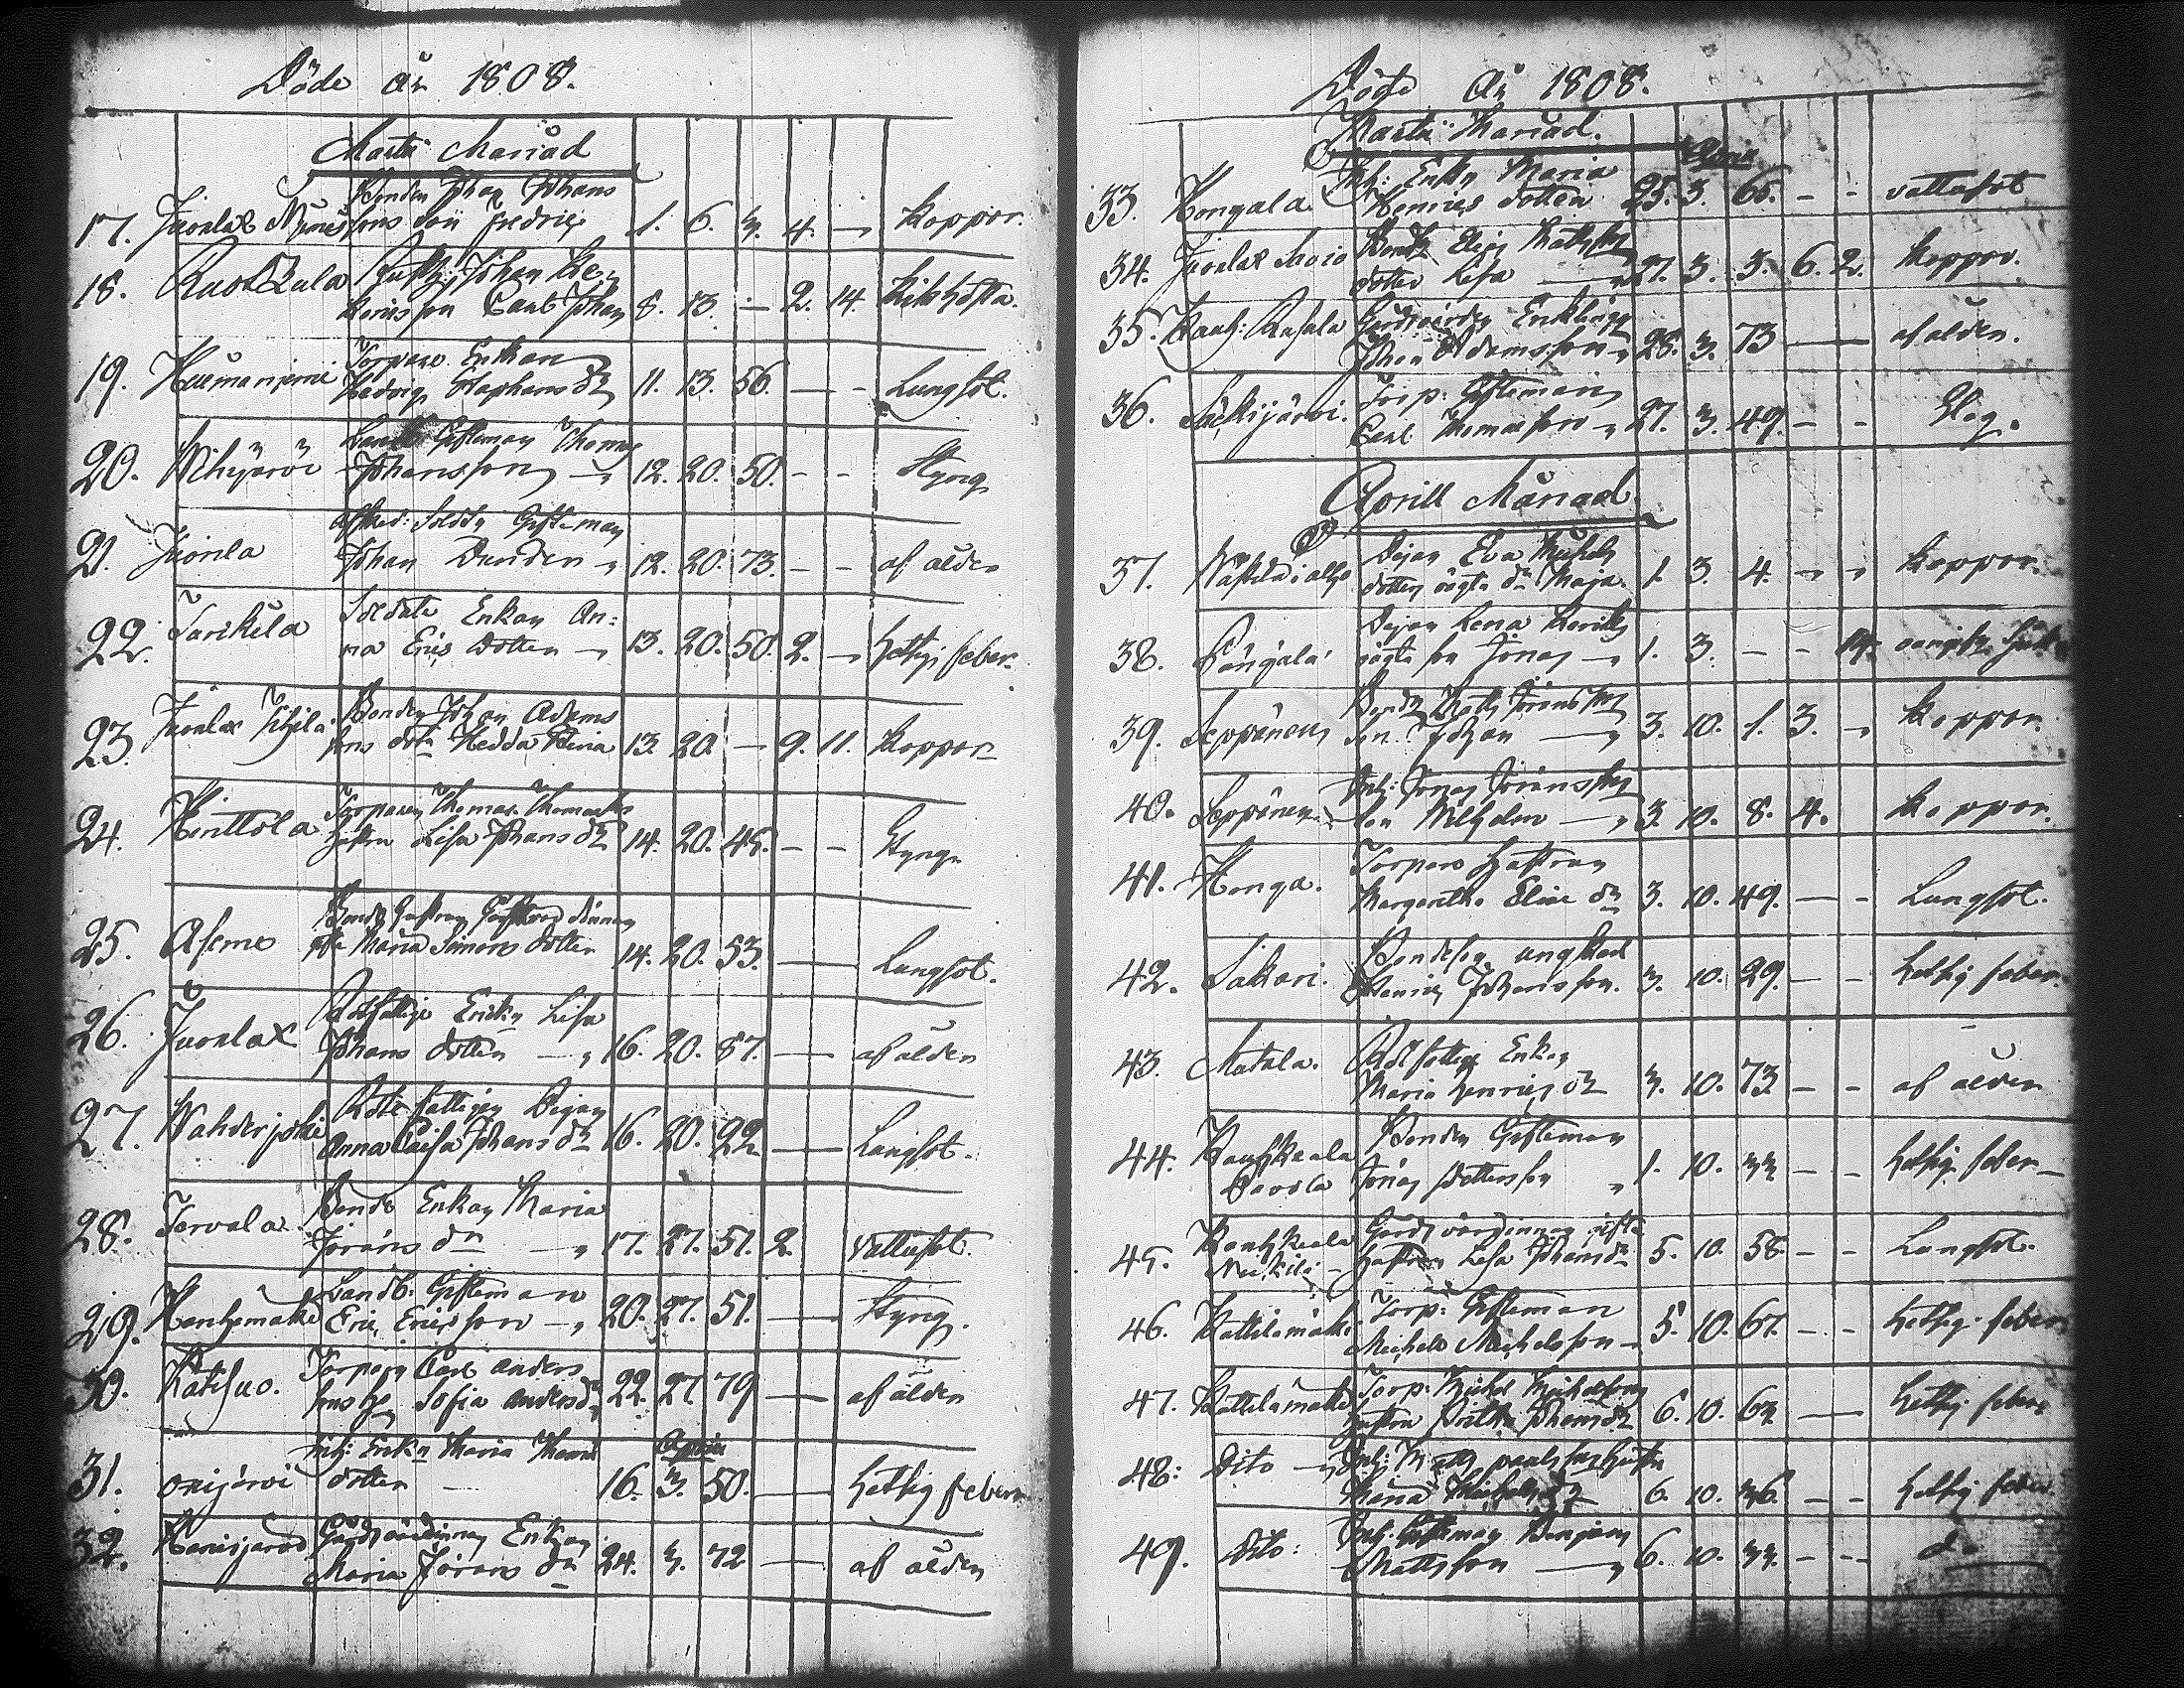 Döde år 1808.
Martii Månad
Bonden Johan Johans
17. Juonlax Mynes sons son Fredric 1. 6. 3. 4. — Koppor.
18. Ruokkula Johan
son Carl Johan 8. 13. — 2. 14. Kikhosta.
19. Torpare Enkan
Hedvig Staphans dr 11. 13. 56. — - Lungsot.
20. Gifteman Thomas
Johansson — 12. 20. 50. - - Styng
21. Juonla Afsked: Soldn Gifteman
Johan Dunder 12. 20. 73. - - af ålder
22. Tarikela Soldate Enkan An:
na Erics dotter 13. 20. 50. 2. — Hettig feber.
23. Juonlax Bonden Johan Adams
sons dotr Hedda Stina 13. 20. — 9. 11. Koppor
24. Hinttola Torparen Thomas Thomassons
hustru Lisa Johans dr 14. 20. 45. - - Styng.
25. Asemo
Maria Simons dotter 14. 20. 53. — Lungsot.
26. Juonlax Rotfattige Enkn Lisa
Johans dotter — 16. 20. 87. — af ålder
27. Wahderjoki Rote fattigen Pigan
Anna Caisa Johans dr 16. 20. 22 — Lungsot.
28. Torvala Bonde Enkan Maria
Jörans dr — 17. 27. 51. 2. Vattusot.
29. Hanhimäki Landb: Gifteman
Eric Ericsson 20. 27. 51. — Styng.
30. Katisuo. Torparn Carl Anders
sons h. Sofia Anders dr 22. 27. 79 — af ålder
31. Onijärvi Inh: Enkn Maria Thoms Aprill
dotter 16. 3. 50. — Hettig feber
32. Gårdvärdinnan Enkan
Maria Jörans dr 24. 3. 72 — af ålder
Döde År 1808.
Martii Månad.
33. Hongala Inh: Enkn Maria Aprill
Henrics dotter 25. 3. 65. - - vattusot
34. Juonlax Bondn Elias Mattsons
dotter Lisa — 27. 3. 3. 6. 2. Koppor.
35. Kauh: Rasala Gårdvärden Enklingen
Johan Adamsson 28. 3. 73 — af ålder.
36. Säckijärvi. Torp: Gifteman
Carl Thomasson 27. 3. 49. - - Slag.
Aprill Månad
37. Pigan Eva Michels
dotters oägta dr Maja 1. 3. 4. Koppor.
38. Pångala Pigan Lena Henrics
oägta son Jonas 1. 3. - - 14.
39. Seppänen Bondn Matts Jöransons
son Johan — 3. 10. 1. 3. Koppor.
40. Seppänen Inh: Jonas Jöransons
son Wilhelm — 3. 10. 8. 4. Koppor.
41. Honga. Torpars hustrun
Margaretha Elias dr 3. 10. 49. — - Lungsot.
42. Sakari. Bondeson ungkarl
Henric Johansson. 3. 10. 29. — - Hettig feber.
43. Matala. Rotfattige Enkan
Maria Henrics dr 3. 10. 73 - - af ålder
44. Kauhkeala Bonden Gifteman
Pavola Jonas Pettersson 1. 10. 33 - - Hettig feber
45. Kauhkeala Gårdsvärdinnan gifta
Neckilä hustrun Lisa Johans dr 5. 10. 58 - - Lungsot.
46. Kattilamäki Torp: Gifteman
Michell Michelsson 5. 10. 67. - - Hettig feber
47. Kattilamäki Torp: Michel Michelsons
hustru Britha Johans dr 6. 10. 63 — Hettig feber
48. Dito Inh: Matts Paulssons hustru
Maria Michels dr 6. 10. 36. - - Hettig feber
49. Dito: Inh. Gifteman Benjam
Mattsson — 6. 10. 33. - - do